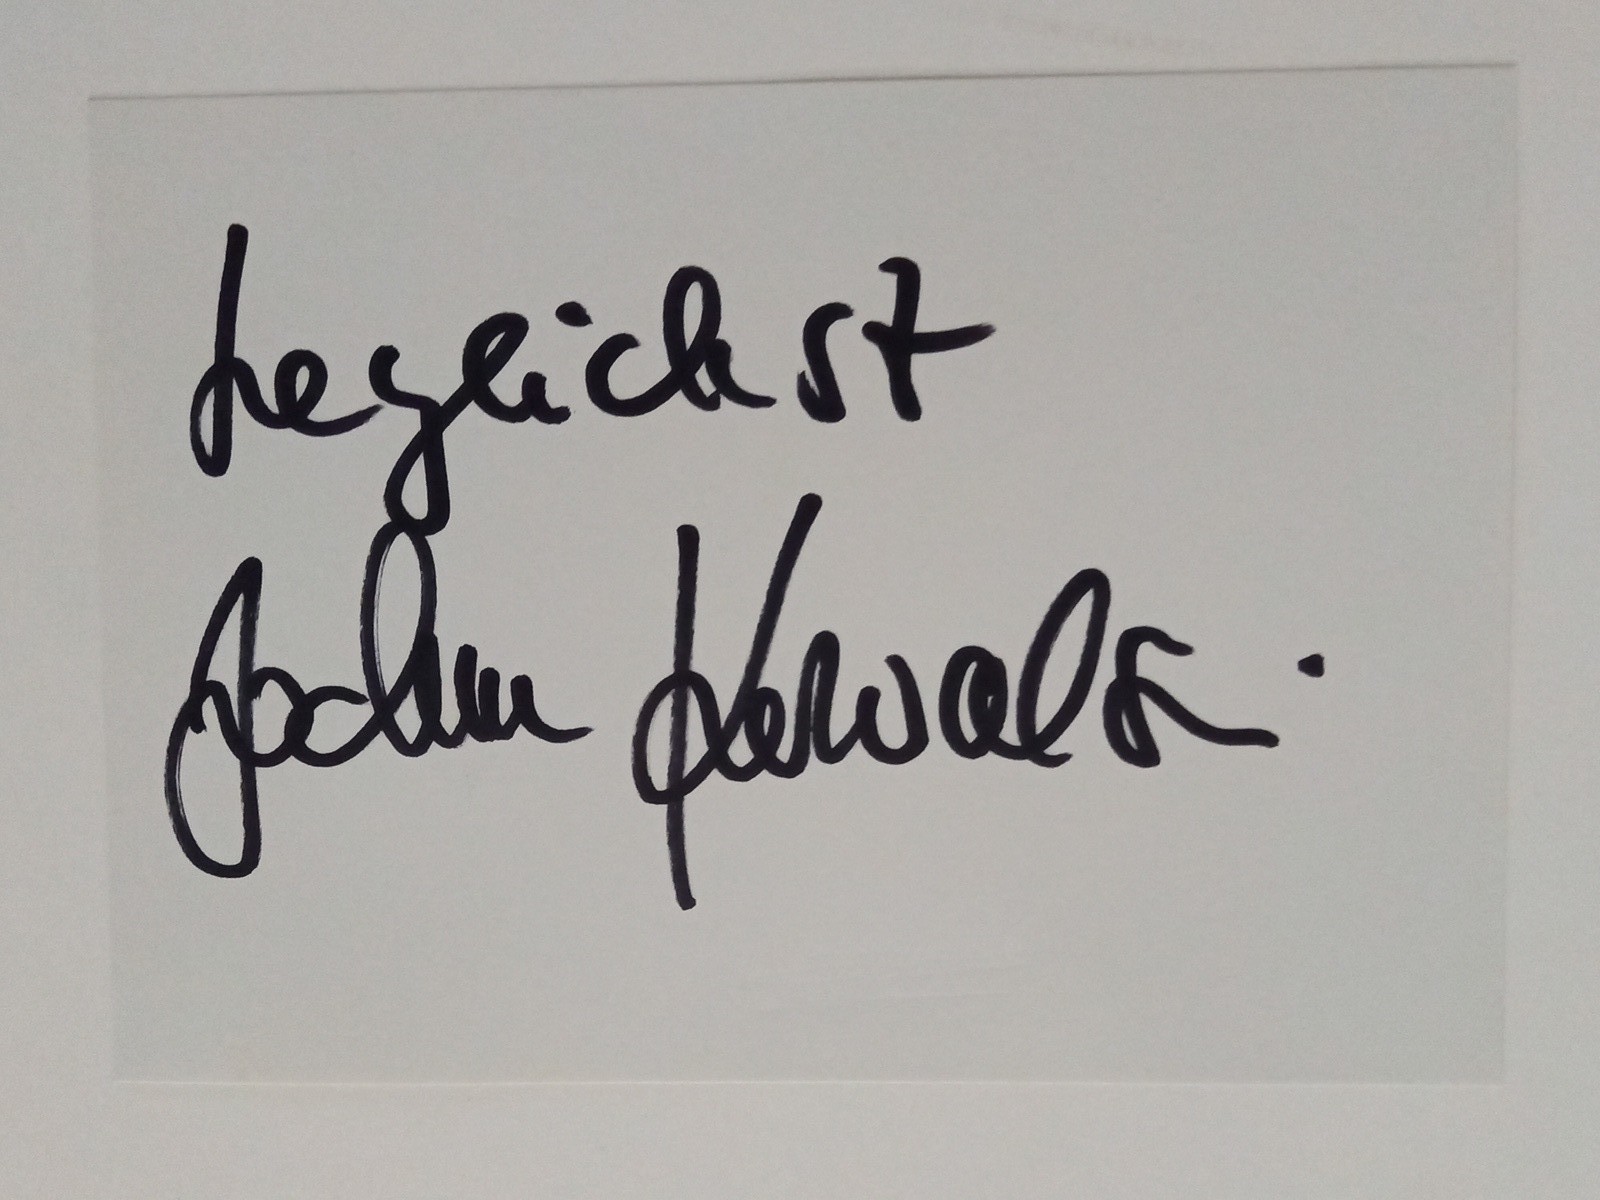 herzlichst
Jochen Kowalski